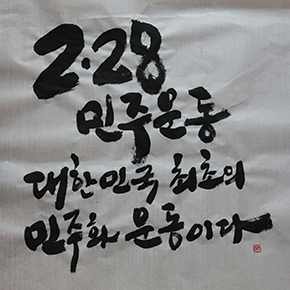 2·28
민주운동
대한민국 최초의
민주화 운동이다